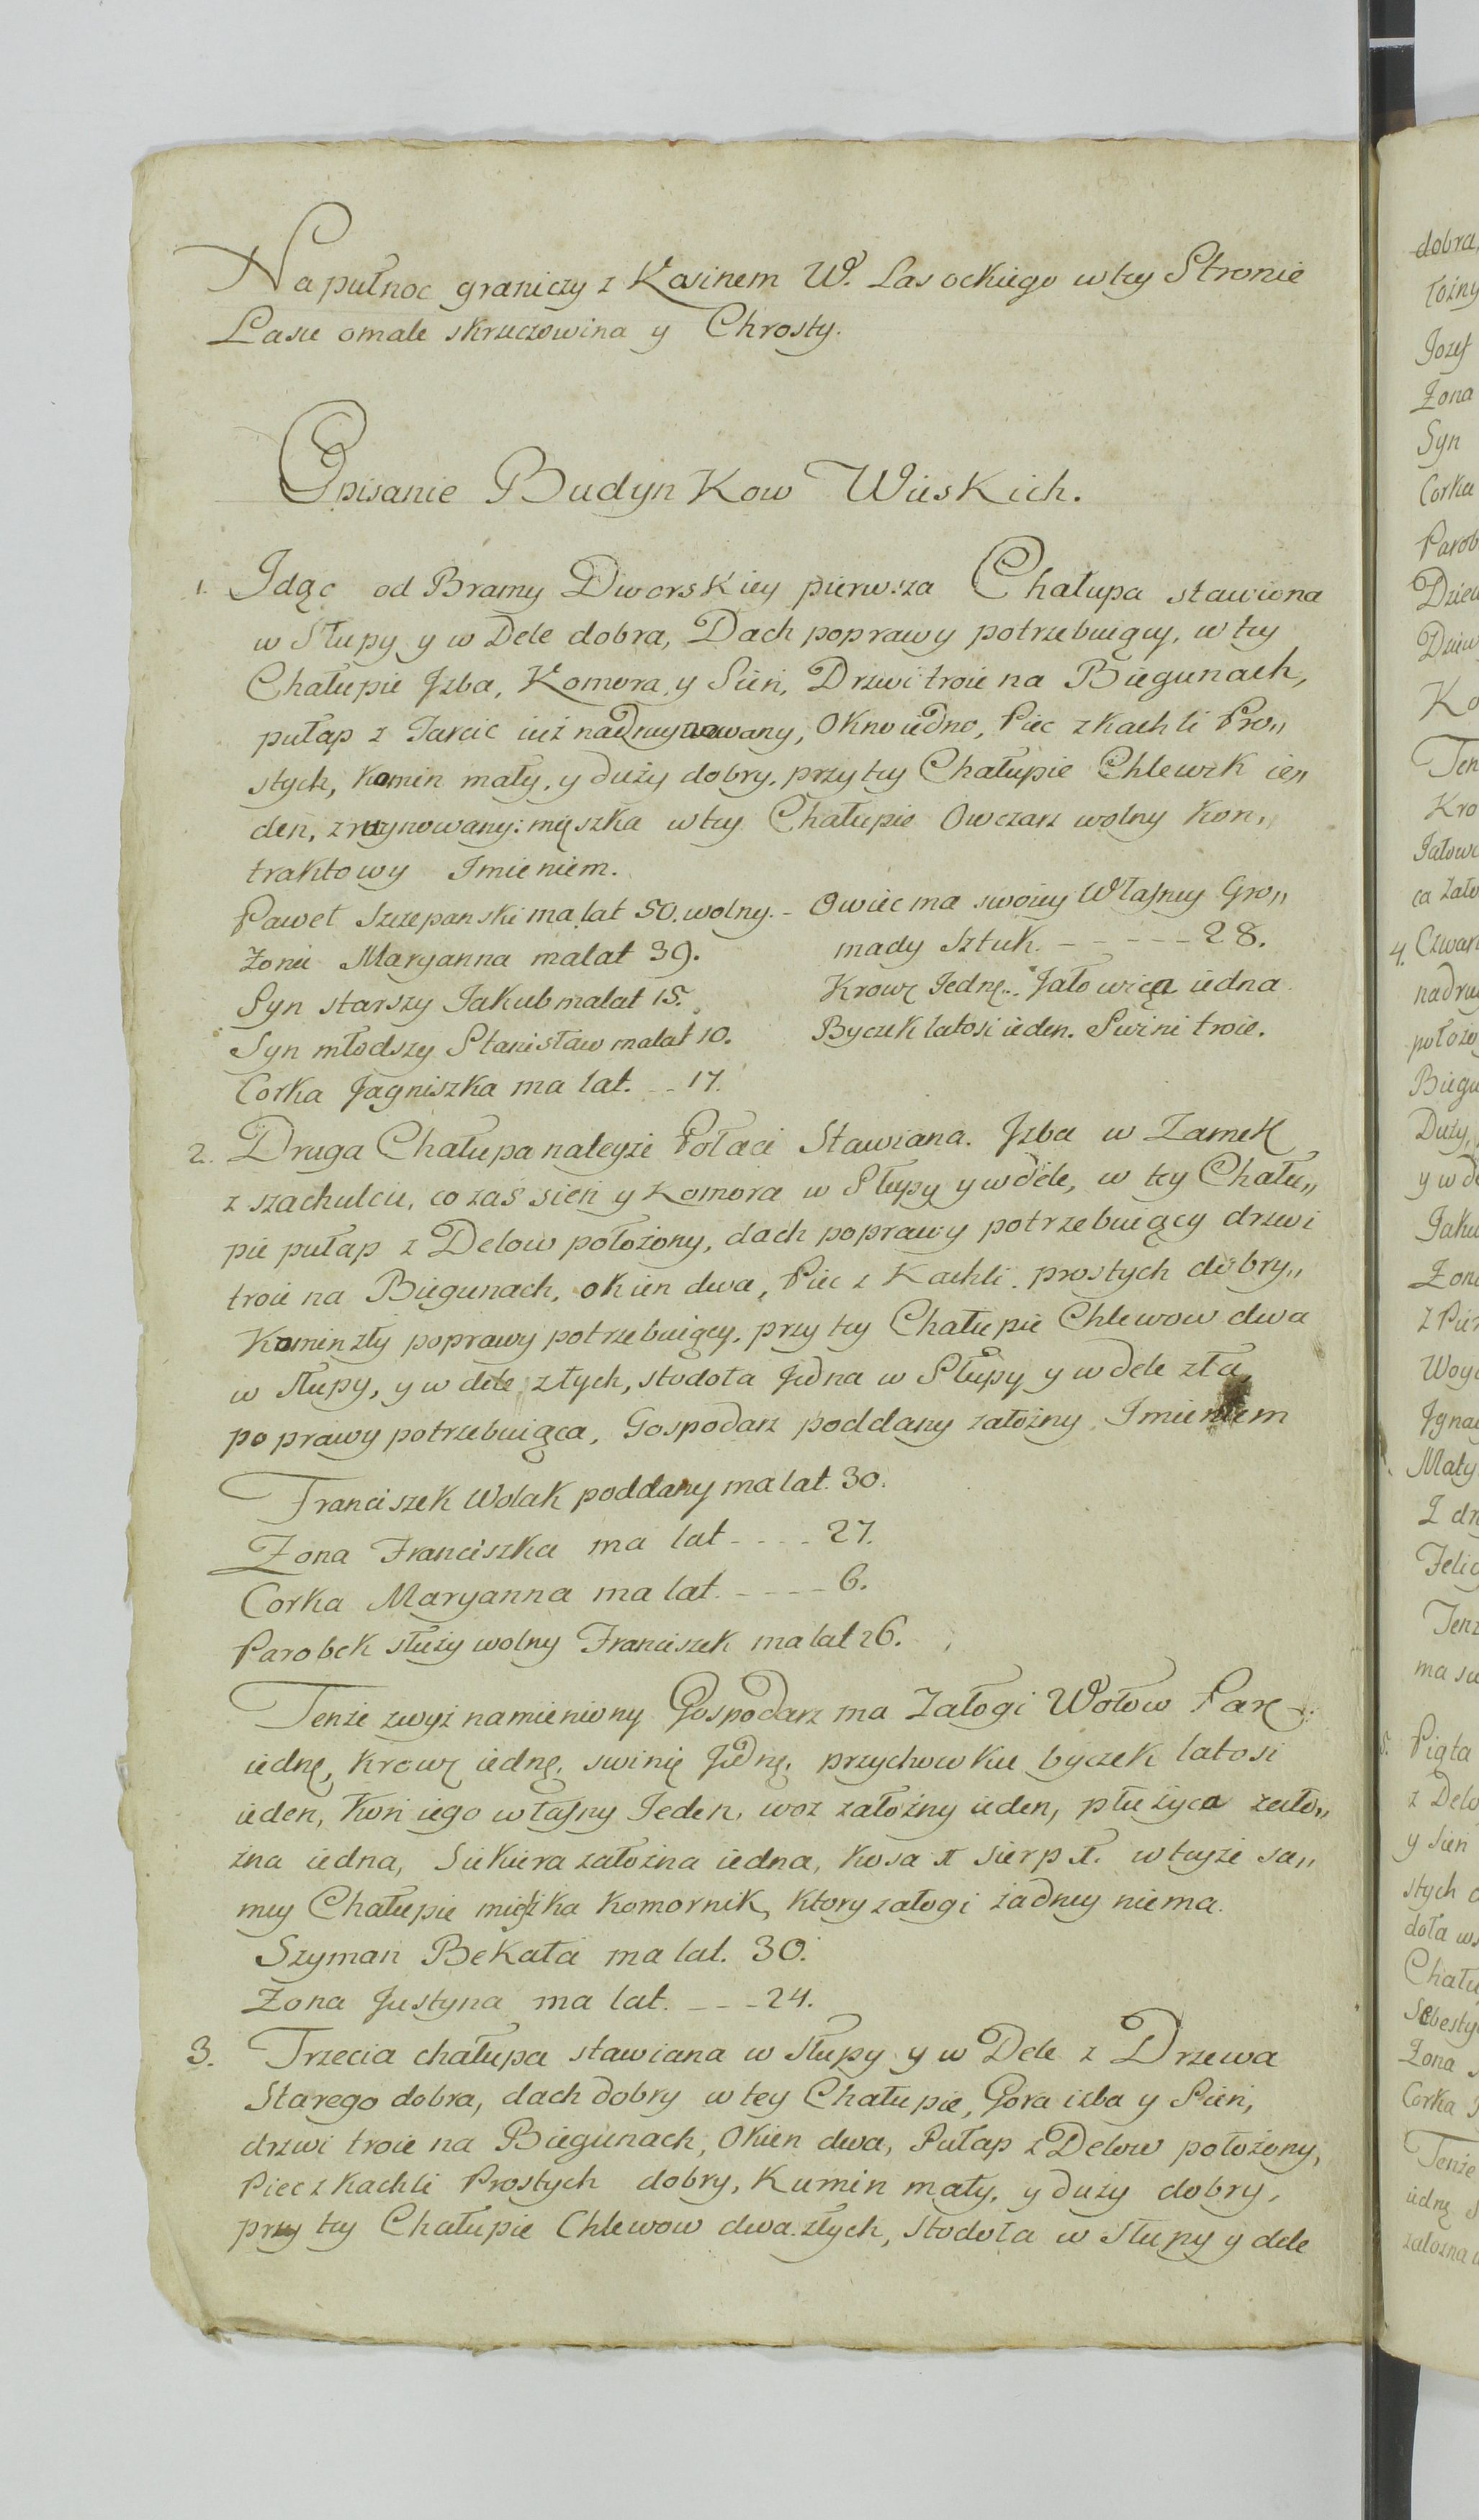 Na pułnoc graniczy z Kosinem W. Lasockiego w tey Stronie
Lasu omale skruczowina y Chrosty.
Opisanie Budynkow Wieskich.
1. Idąc od Bramy Dworskiey pierwsza Chałupa stawiona
w Słupy y w Dele dobra, Dach poprawy potrzebuiący, w tey
Chałupie Jzba, Komora, y Sień, Drzwi troie na Biegunach,
pułap z Tarcic iuż nadruynowany, Okno iedno, Piec z kachli Pro„
stych, Komin mały, y duży dobry, przy tey Chałupie Chlewik ie„
den, zruynowany: mięszka w tey Chałupie Owczarz wolny kon„
traktowy Imieniem.
Paweł Szczepanski ma lat 50. wolny. - Owiec ma swoiey Własney Gro„
Zona Maryanna ma lat 39. mady Sztuk. - - - - - 28.
Syn starszy Jakub ma lat 15. Krowę Iednę. Jałowica iedna
Syn młodszy Stanisław ma lat 10. Byczek latosi ieden. Swini troie.
Corka Jagniszka ma lat. - - 17.
2. Druga Chałupa należe Połaci Stawiana. Jzba w Zamek
z szachulcu, co zaś sień y Komora w Słupy y w dele, w tey Chału„
pie pułap z Delow położony, dach poprawy potrzebuiący drzwi
troie na Biegunach, okien dwa, Piec z Kachli prostych dobry„
Komin zły poprawy potrzebuiący, przy tey Chałupie Chlewow dwa
w słupy, y w dele złych, stodoła Jedna w Słupy y w dele zła,
poprawy potrzebuiąca, Gospodarz poddany założny Imieniem
Franciszek Wolak poddany ma lat. 30.
Zona Franciszka ma lat - - - - 27.
Corka Maryanna ma lat. - - - - 6.
Parobek służy wolny Franciszek ma lat 26.
Tenże zwyż namieniony Gospodarz ma Załogi Wołow Parę
iednę, krowę iednę, swinię Jednę, przychowku byczek latosi
ieden, koń iego własny Ieden, woz założny ieden, płużyca zało„
żna iedna, Siekiera założna iedna, kosa 1 sierp 1. w teyże sa„
mey Chałupie mięszka Komornik, ktory załogi żadney niema.
Szyman Bekała ma lat. 30.
Zona Justyna ma lat. - - - 24.
3. Trzecia chałupa stawiana w słupy y w Dele z Drzewa
Starego dobra, dach dobry w tey Chałupie, Gora izba y Sień,
drzwi troie na Biegunach, Okien dwa, Pułap z Delow położony,
Piec z kachli Prostych dobry, Kumin mały, y duży dobry,
przy tey Chałupie Chlewow dwa złych, Stodoła w słupy y dele